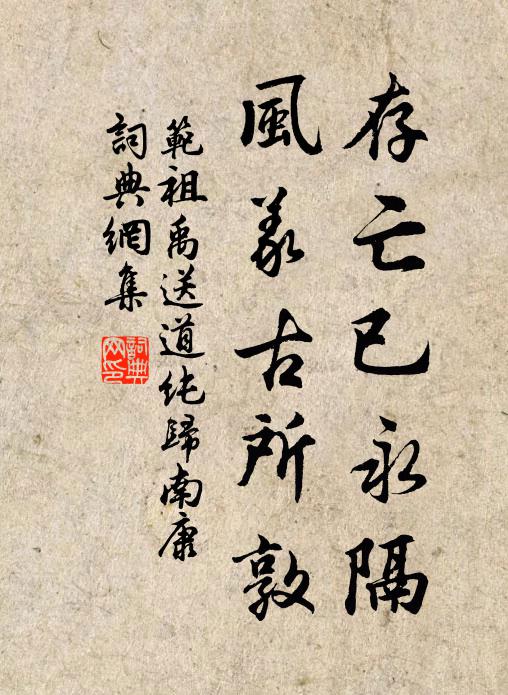 存亡已永隔
風義古所敦
範祖禹送道純歸南康
詞典網集
詞典網印